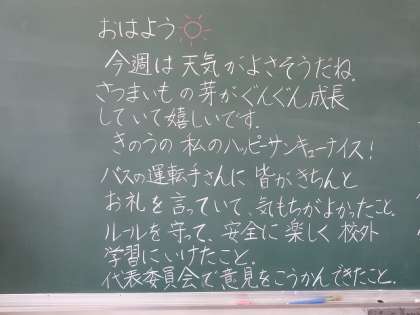 おはよう
今週は天気がよさそうだね。
さつまいもの芽がぐんぐん成長
していて嬉しいです。
きのうの私のハッピーサンキューナイス!
バスの運転手さんに皆がきちんと
お礼を言っていて、気もちがよかったこと。
ルールを守って、安全に楽しく校外
学習にいけたこと。
代表委員会で意見をこうかんできたこと。